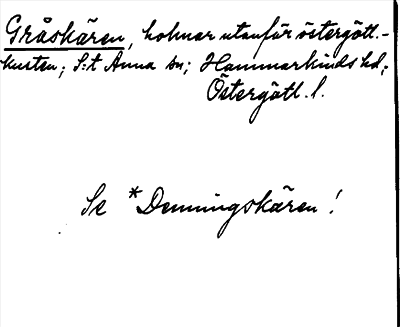 Gråskären, holmar utanför östergötl.-
kusten; S:t Anna sn; Hammarkinds hd;
Östergötl. l.
Se *Denningskären!